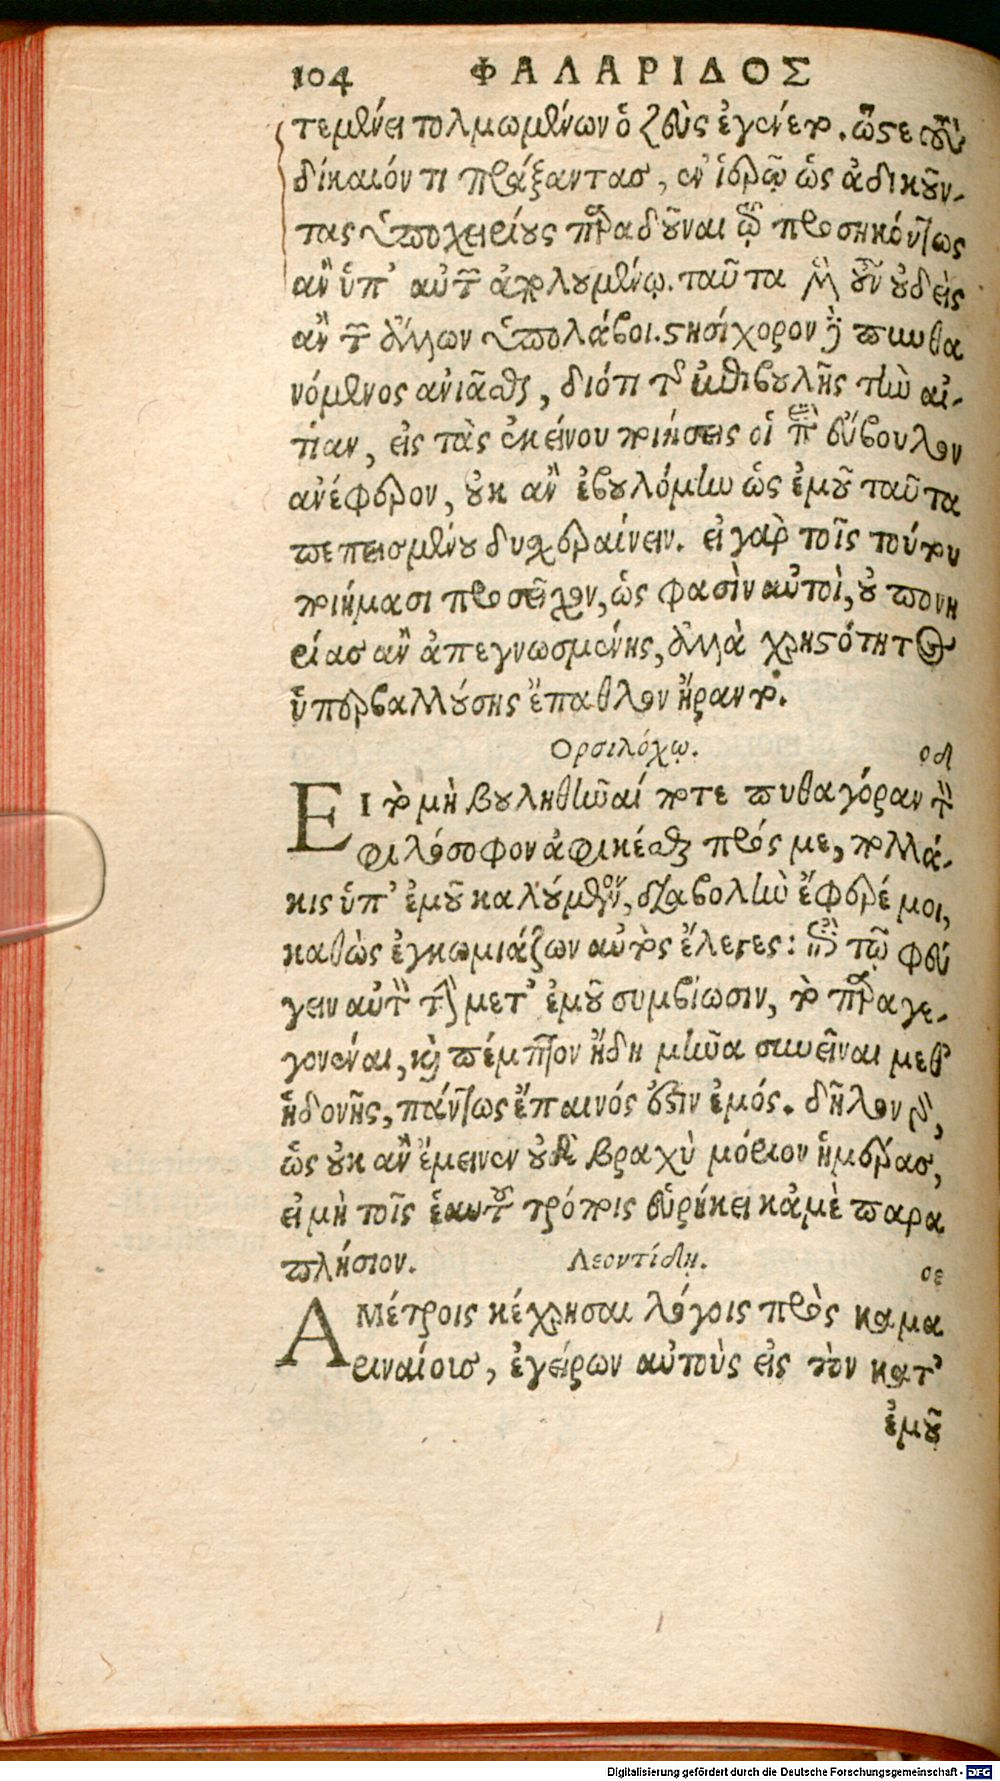 104 ΦΑΛΑΡΙΔΟΣ
τεμένει τολμωμένων ὁ ζεὺς ἐγένετο. ὥστε τοὺς
δίκαιόν τι πράξαντας, ἐν ἱερῷ ὡς ἀδικοῦν-
τας ὑποχειρίους παραδοῦναι τῷ προσηκόντως
ἂν ὑπ' αὐτῶν ἀπολουμένῳ. ταῦτα μὲν οὖν οὐδεὶς
ἂν τῶν ἄλλων ὑπολάβοι. στησίχορον δὲ πυνθα
νόμενος ἀνιᾶσθαι, διότι τῆς ἐπιβουλῆς τὴν αἰ-
τίαν, εἰς τὰς ἐκείνου ποιήσεις οἱ περὶ εὔβουλον
ἀνέφερον, οὐκ ἂν ἐβουλόμην ὡς ἐμοῦ ταῦτα
πεπεισμένου δυσχεραίνειν. εἰ γὰρ τοῖς τούτου
ποιήμασι προσεῖχον, ὡς φασὶν αὐτοὶ, οὐ πονη
ρίας ἂν ἀπεγνωσμένης, ἀλλὰ χρηστότητος
ὑπερβαλλούσης ἔπαθλον ἤραντο.
Ορσιλόχῳ. οδ
ΕΙ τὸ μὴ βουληθῆναί ποτε πυθαγόραν τὸν
φιλόσοφον ἀφικέσθαι πρός με, πολλά-
κις ὑπ' ἐμοῦ καλούμενον, διαβολὴν ἔφερέ μοι,
καθὼς ἐγκωμιάζων αὐτὸς ἔλεγες: ἐπὶ τῷ φεύ
γειν αὐτὸν τὴν μετ' ἐμοῦ συμβίωσιν, τὸ παραγε-
γονέναι, καὶ πέμπτον ἤδη μῆνα συνεῖναι μεθ'
ἡδονῆς, πάντως ἔπαινός ἐστιν ἐμός. δῆλον γὰρ,
ὡς οὐκ ἂν ἔμεινεν οὐδὲ βραχὺ μόριον ἡμέρας,
εἰ μὴ τοῖς ἑαυτοῦ τρόποις εὑρήκει κἀμὲ παρα
πλήσιον. Λεοντίδῃ. οε
ΑΜέτροις κέχρησαι λόγοις πρὸς καμα
ριναίους, ἐγείρων αὐτοὺς εἰς τὸν κατ'
ἐμοῦ
Digitalisierung gefördert durch die Deutsche Forschungsgemeinschaft - DFG